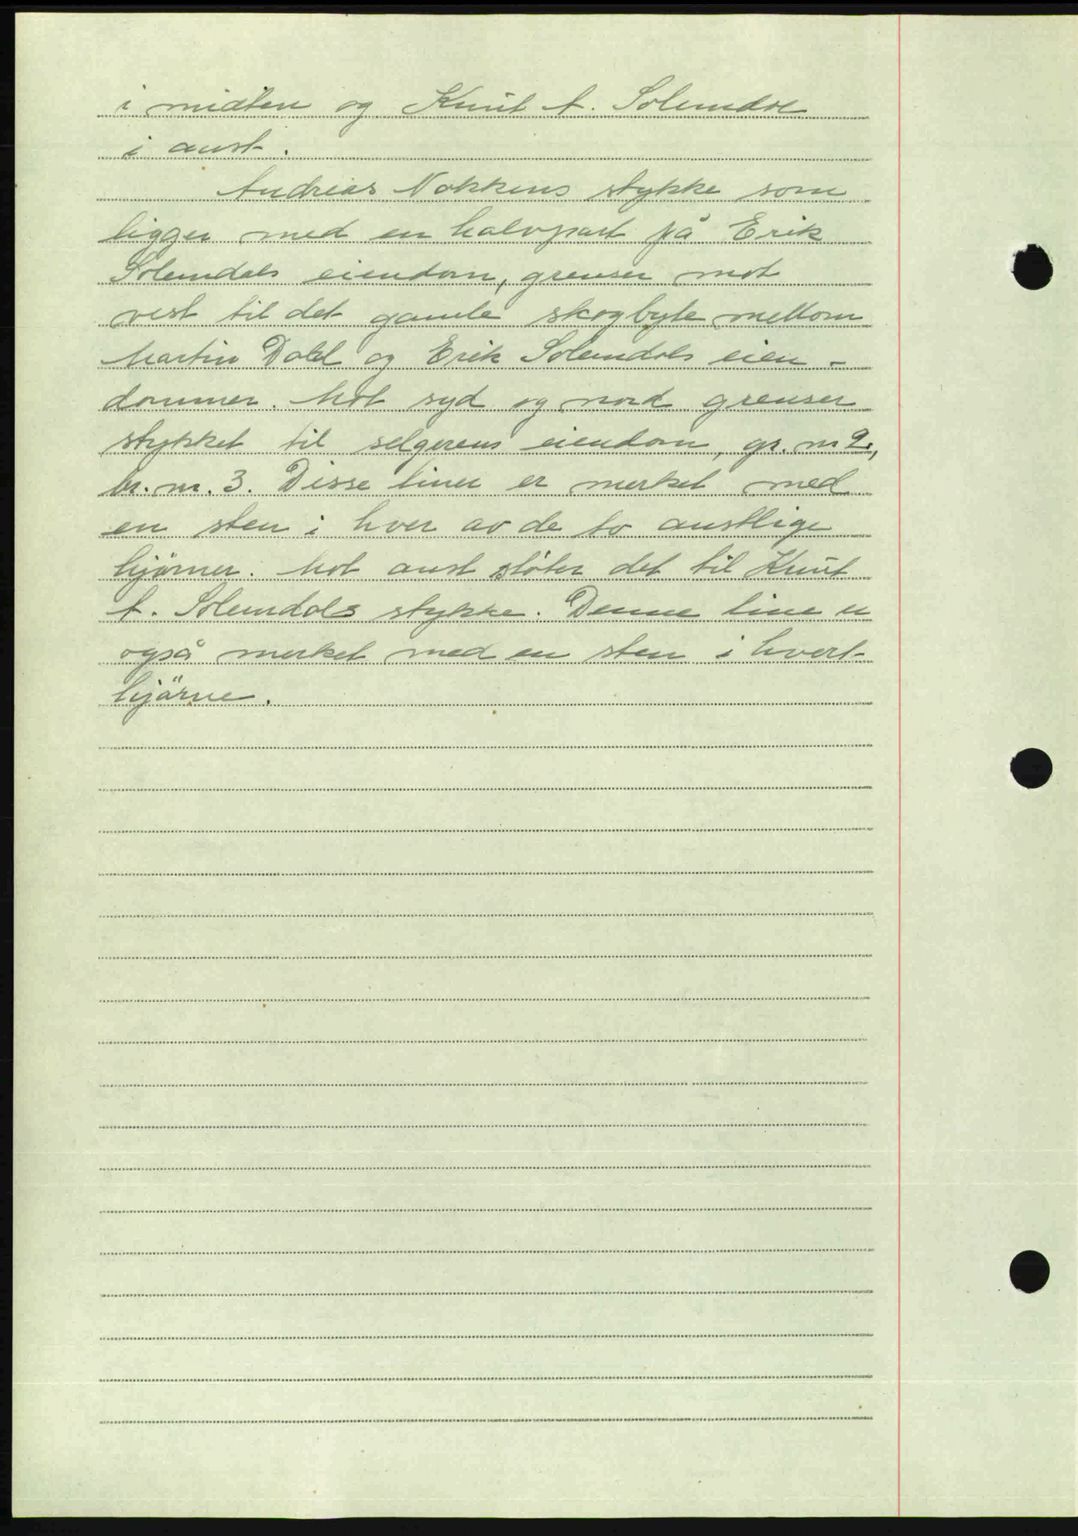 i midten og Knut A. Solemdal
i aust.
Andreas Nakkens stykke som
ligger med en halvpart på Erik
Solemdals eiendom, grenser mot
vest til det gamle skogbyte mellom
Martin Dahl og Erik Solemdals eien-
dommer. Mot syd og nord grenser
stykket til selgerens eiendom, gr. nr 2,
br. nr. 3. Disse liner er merket med
en sten i hver av de to austlige
hjörner. Mot aust støter det til Knut
A. Solemdals stykke. Denne line er
også merket med en sten i hvert
hjörne.